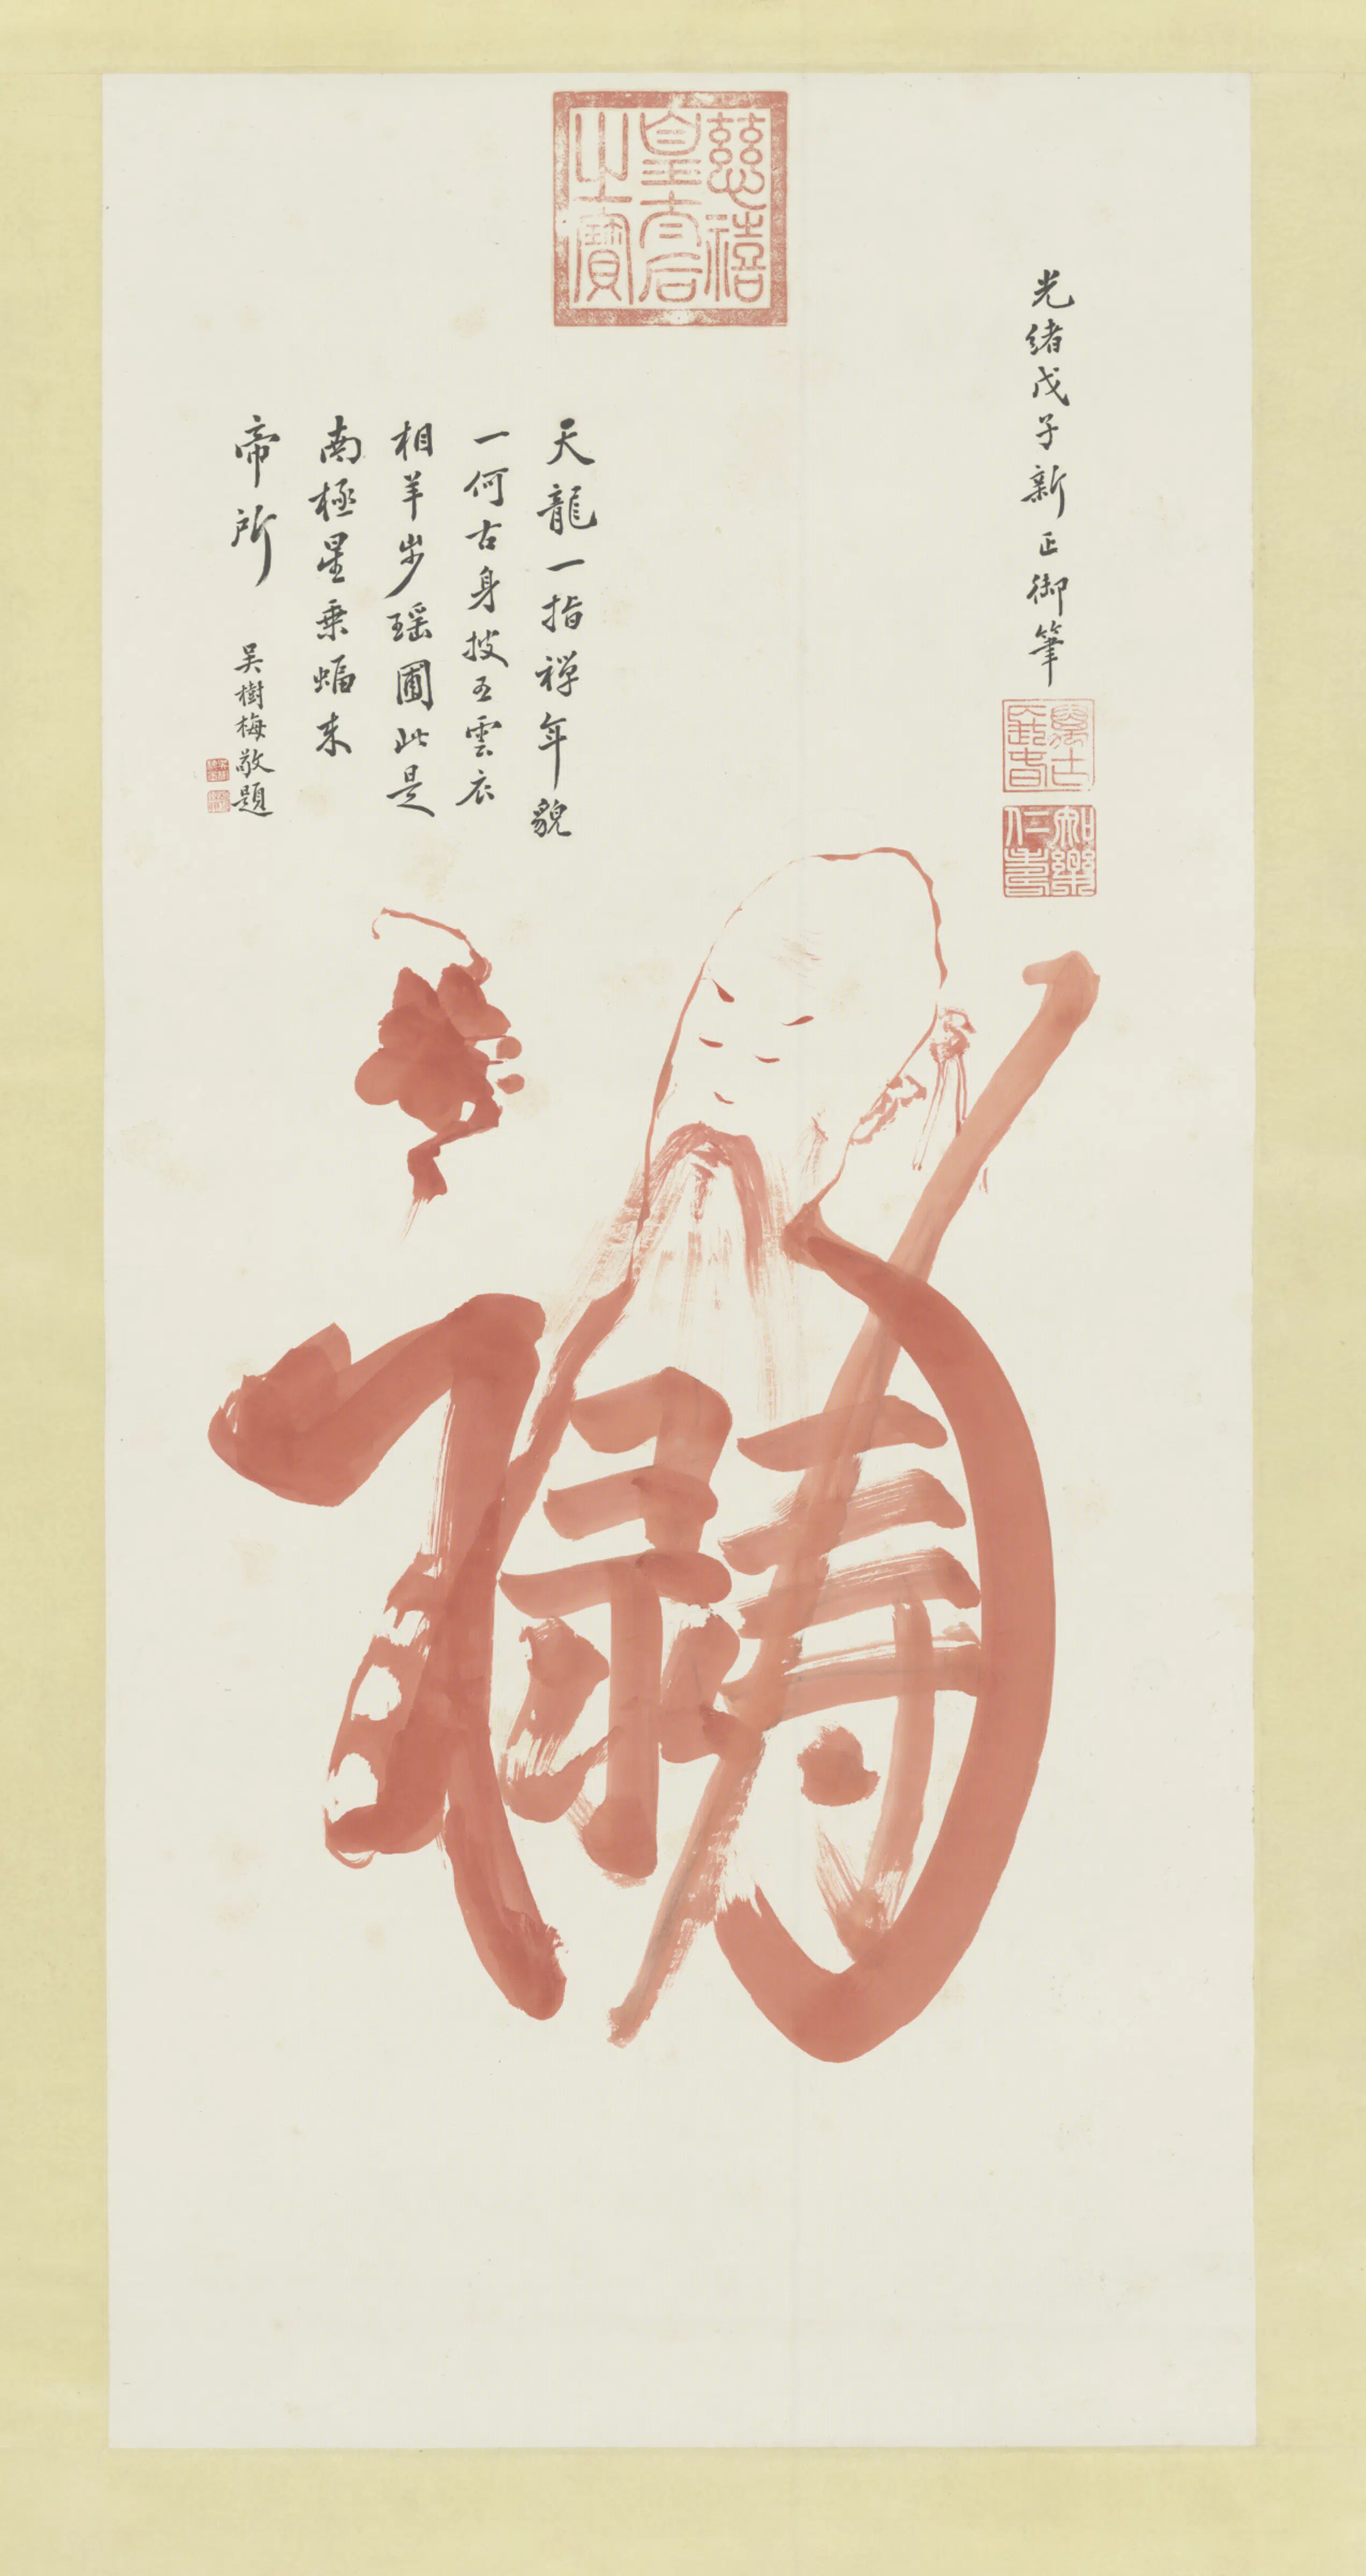 慈禧
皇太后
之寶
光緒戊子新正御筆
知樂
仁壽
天龍一指禪年貌
一何古身披五雲衣
相羊步瑤圃此是
南極星乘蝠來
帝所
吳樹梅敬題